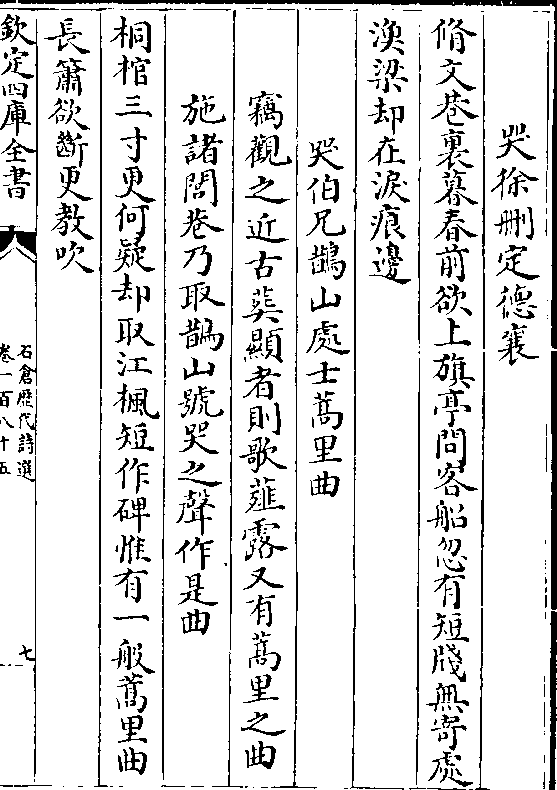 哭徐刪定德襄
脩文巷裏暮春前欲上旗亭問客船忽有短牋無寄處
渙梁却在淚痕邊
哭伯兄鵲山處士蒿里曲
竊觀之近古葬顯者則歌薤露又有蒿里之曲
施諸閭巷乃取鵲山號哭之聲作是曲
桐棺三寸更何疑却取江楓短作碑惟有一般蒿里曲
長簫欲斷更教吹
欽定四庫全書
石倉歷代詩選
卷一百八十五
七